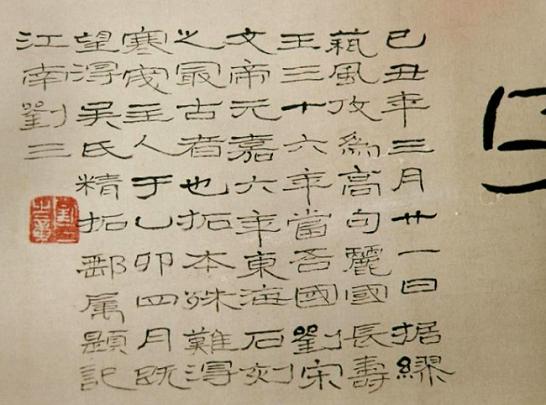 己丑年三月廿一日据繆
蓺風攷為高句麗國長壽
王三十六年當吾國劉宋
文帝元嘉六年東海石刻
之最古者也拓本殊難得
寒主人于乙卯四月既
望得吴氏精拓郵属題記
江南劉三